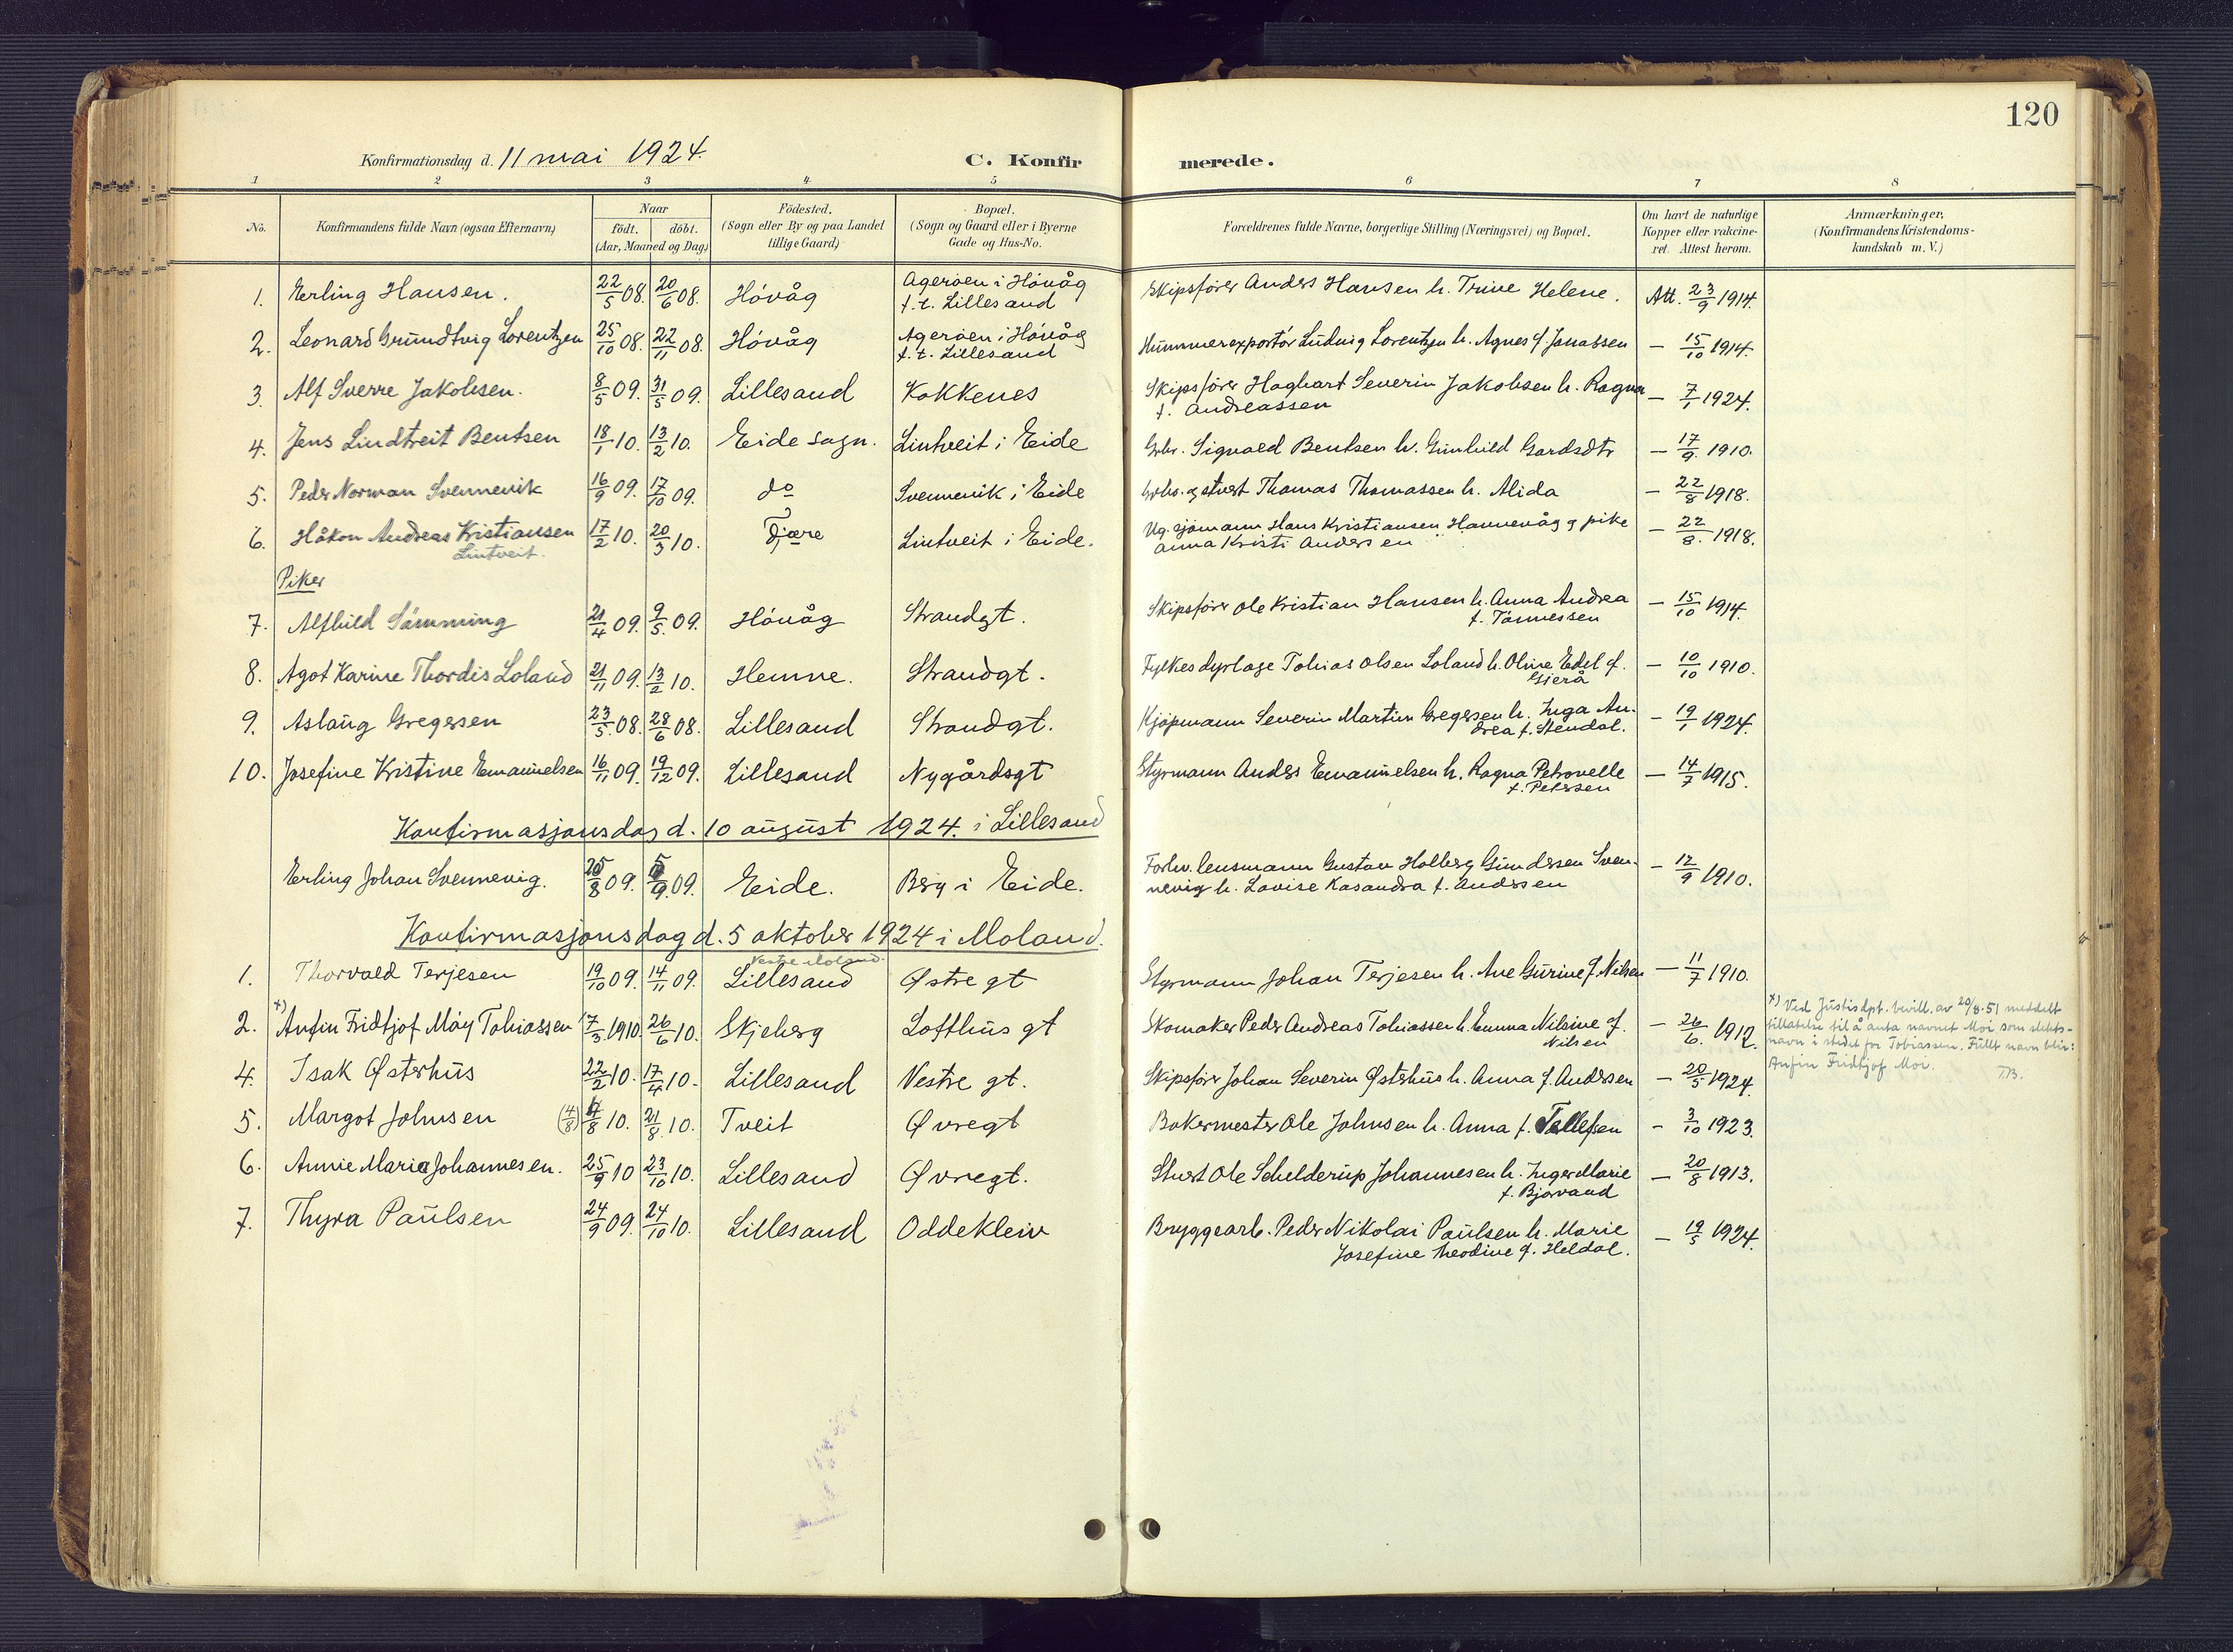 120
Konfirmationsdag d. 11 mai 1924.
C. Konfirmerede.
1 2 3 4 5 6 7 8
No. Konfirmandens fulde Navn (ogsaa Efternavn) Naar født. døbt. (Aar, Maaned og Dag) Födested. (Sogn eller By og paa Landet tillige Gaard) Bopæl. (Sogn og Gaard eller i Byerne Gade og Hus-No. Forældrenes fulde Navne, borgerlige Stilling (Næringsvei) og Bopæl. Om havt de naturlige Kopper eller vakcineret. Attest herom. Anmærkninger. (Konfirmandens Kristendomskundskab m. V.)
1. Erling Hansen. 22/5 08. 20/6 08. Hövåg Ageröen i Hövåg Skipsfører Anders Hansen h. Trine Helene. Att. 23/9 1914.
f.t. Lillesand
2. Leonard Grundtvig Lorentzen 25/10 08. 22/11 08. Hövåg Ageröen i Hövåg Hummerexportör Ludvig Lorentzen h. Agnes f. Jonassen — 15/10 1914.
f.t. Lillesand
3. Alf Sverre Jakobsen. 8/5 09. 31/5 09. Lillesand Kokkenes Skipsfører Hagbart Severin Jakobsen h. Ragna — 7/1 1924.
f. Andreassen
4. Jens Lindtveit Bentsen 18/1 10. 13/2 10. Eide sogn. Lintveit i Eide Grbr. Sigvald Bentsen h. Gunhild Gardsdtr — 17/9. 1910.
5. Peder Norman Svennevik 16/9 09. 17/10 09. do Svennevik i Eide Grbr. og stuert Thomas Thomassen h. Alida — 22/8 1918.
6. Håkon Andreas Kristiansen 17/2 10. 20/3 10. Fjære Lintveit i Eide. Ug. sjömann Hans Kristiansen Hannevåg og pike — 22/8. 1918.
Lintveit. Anna Kristi Andersen
Piker
7. Alfhild Sömming 21/4 09. 9/5. 09. Hövåg Strandgt. Skipsfører Ole Kristian Hansen h. Anna Andrea — 15/10 1914.
f. Tönnessen
8. Agot Karine Thordis Loland 21/11 09. 13/2 10. Hemne. Strandgt. Fylkesdyrlæge Tobias Olsen Loland h. Oline Edel f. — 10/10 1910.
Gjerå
9. Aslaug Gregersen 23/5. 08. 28/6 08. Lillesand Strandgt. Kjöpmann Severin Martin Gregersen h. Inga An- — 19/1 1924.
drea f. Stendal.
10. Josefine Kristine Emanuelsen 16/11 09. 19/12 09. Lillesand Nygårdsgt Styrmann Anders Emanuelsen h. Ragna Petronelle — 14/7 1915.
f. Petersen
Konfirmasjonsdag d. 10 august 1924. i Lillesand
Erling Johan Svennevig. 25/8 09. 5/9. 09. Eide. Berg i Eide. Forhv. lensmann Gustav Holberg Gundersen Sven- — 12/9 1910.
nevig h. Lovise Kasandra f. Andersen
Konfirmasjonsdag d. 5 oktober 1924 i Moland.
Vestre Moland.
1. Thorvald Terjesen 19/10 09. 14/11 09. Lillesand Østre gt Styrmann Johan Terjesen h. Ane Gurine f. Nilsen — 11/7 1910.
2. x) Anfin Fridtjof Moy Tobiassen 7/3. 1910. 26/6 10. Skjeberg Lofthus gt Skomaker Peder Andreas Tobiassen h. Emma Nilsine f. — 26/6. 1912.
Nilsen
x) Ved Justisdpt. bevill. av 20/8.51 meddelt
tillatelse til å anta navnet Moi som slekts-
navn i stedet for Tobiassen. Fullt navn blir:
Anfin Fridtjof Moi. T.B.
4. Isak Østerhus 22/2 10. 17/4 10. Lillesand Vestre gt. Skipsfører Johan Severin Østerhus h. Anna f. Andersen — 20/5 1924.
5. Margot Johnsen (4/8) 4/8 10. 21/8. 10. Tveit Øvregt Bakermester Ole Johnsen h. Anna f. Tellefsen - 3/10 1923.
6. Annie Marie Johannesen. 25/9 10 23/10 10. Lillesand Øvregt. Stuert Ole Schelderup Johannesen h. Inger Marie — 20/8 1913.
f. Bjorvand
7. Thyra Paulsen 24/9 09. 24/10 10. Lillesand Oddekleiv Bryggearb. Peder Nikolai Paulsen h. Marie — 19/5 1924.
Josefine Theodine f. Heldal.